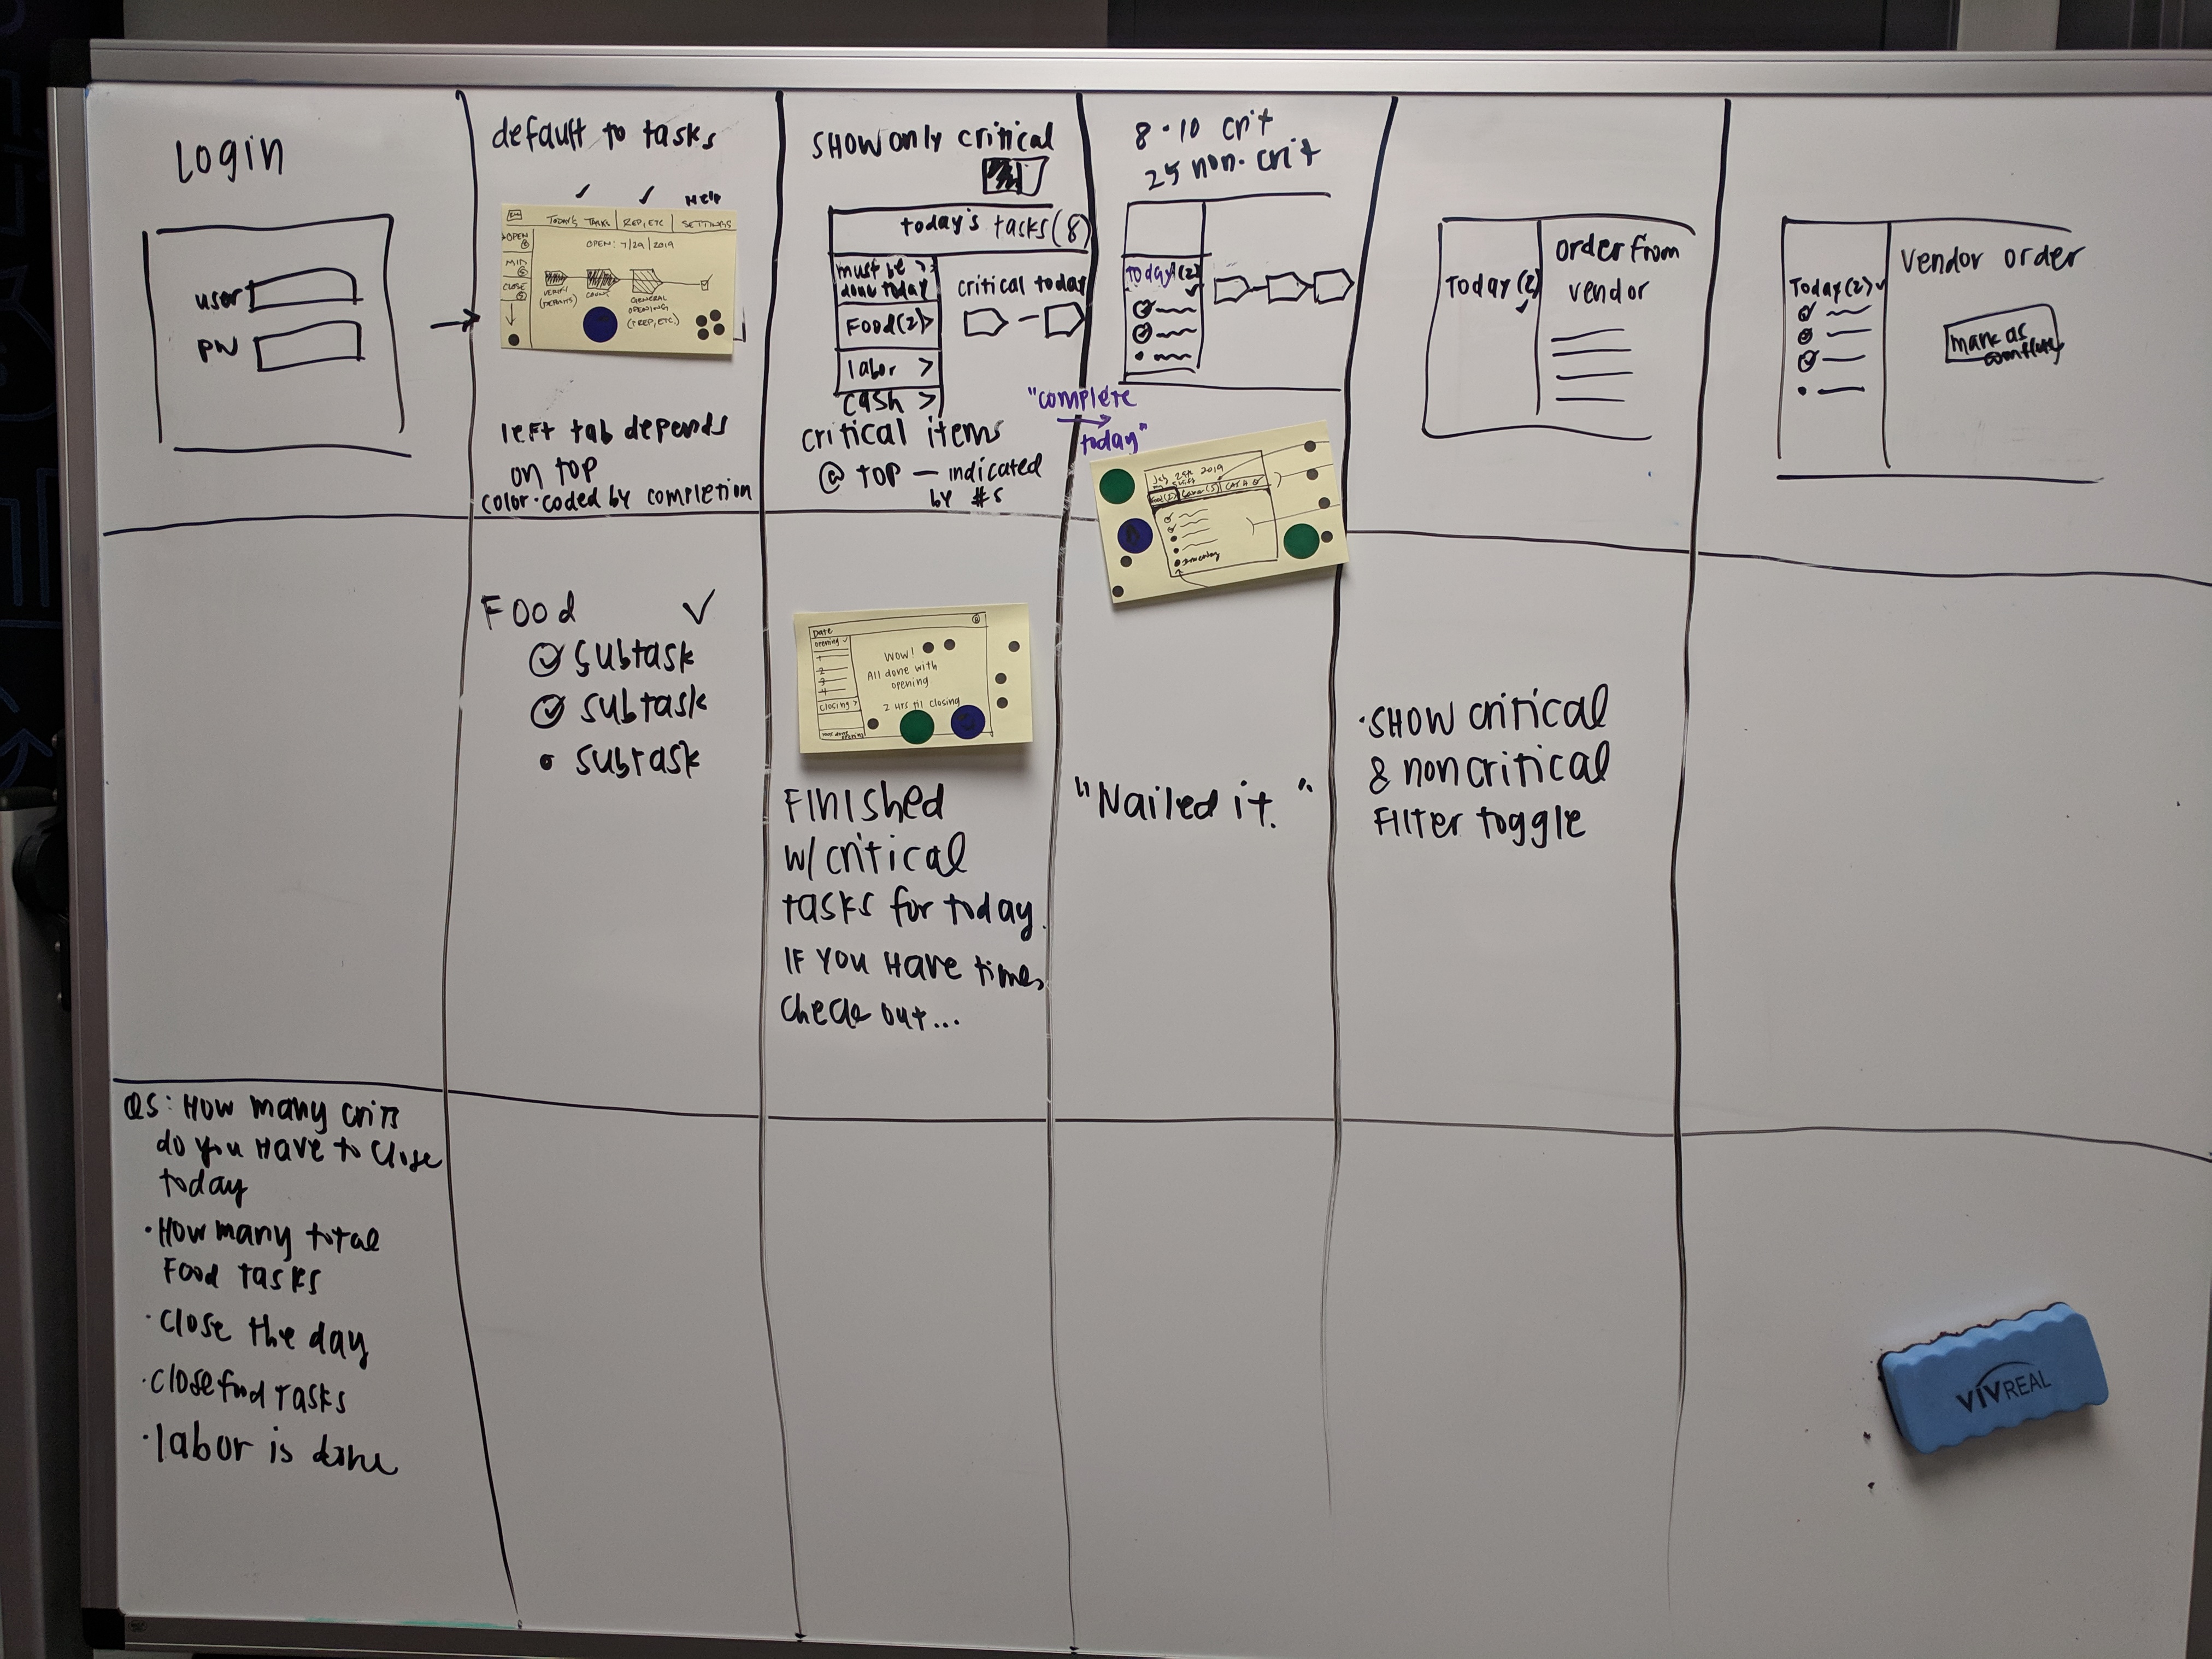 Login
user
PW
default to tasks
Help
TODAY'S TASKS
REP, ETC
SETTINGS
OPEN
OPEN: 7/29/2019
MID
CLOSE
VERIFY
COUNT
GENERAL
OPENING
(PREP, ETC.)
left tab depends
on top
color-coded by completion
SHOW only critical
today's tasks (8)
must be >
done today
Food (2) >
labor >
cash >
critical today
critical items
@ TOP — indicated
by #s
8-10 crit
25 non-crit
Today (2)
"complete
today"
2019
Today (2)
order from
vendor
Today (2)
vendor order
mark as
complete
Food
subtask
subtask
subtask
Date
opening
1
2
3
4
closing >
Wow!
All done with
opening
2 Hrs til closing
Finished
w/critical
tasks for today.
IF YOU HAVE time,
check out...
"Nailed it."
• SHOW critical
& noncritical
Filter toggle
QS: How many crits
do you HAVE to close
today
• How many total
Food tasks
• close the day
• close food tasks
• labor is done
VIVREAL